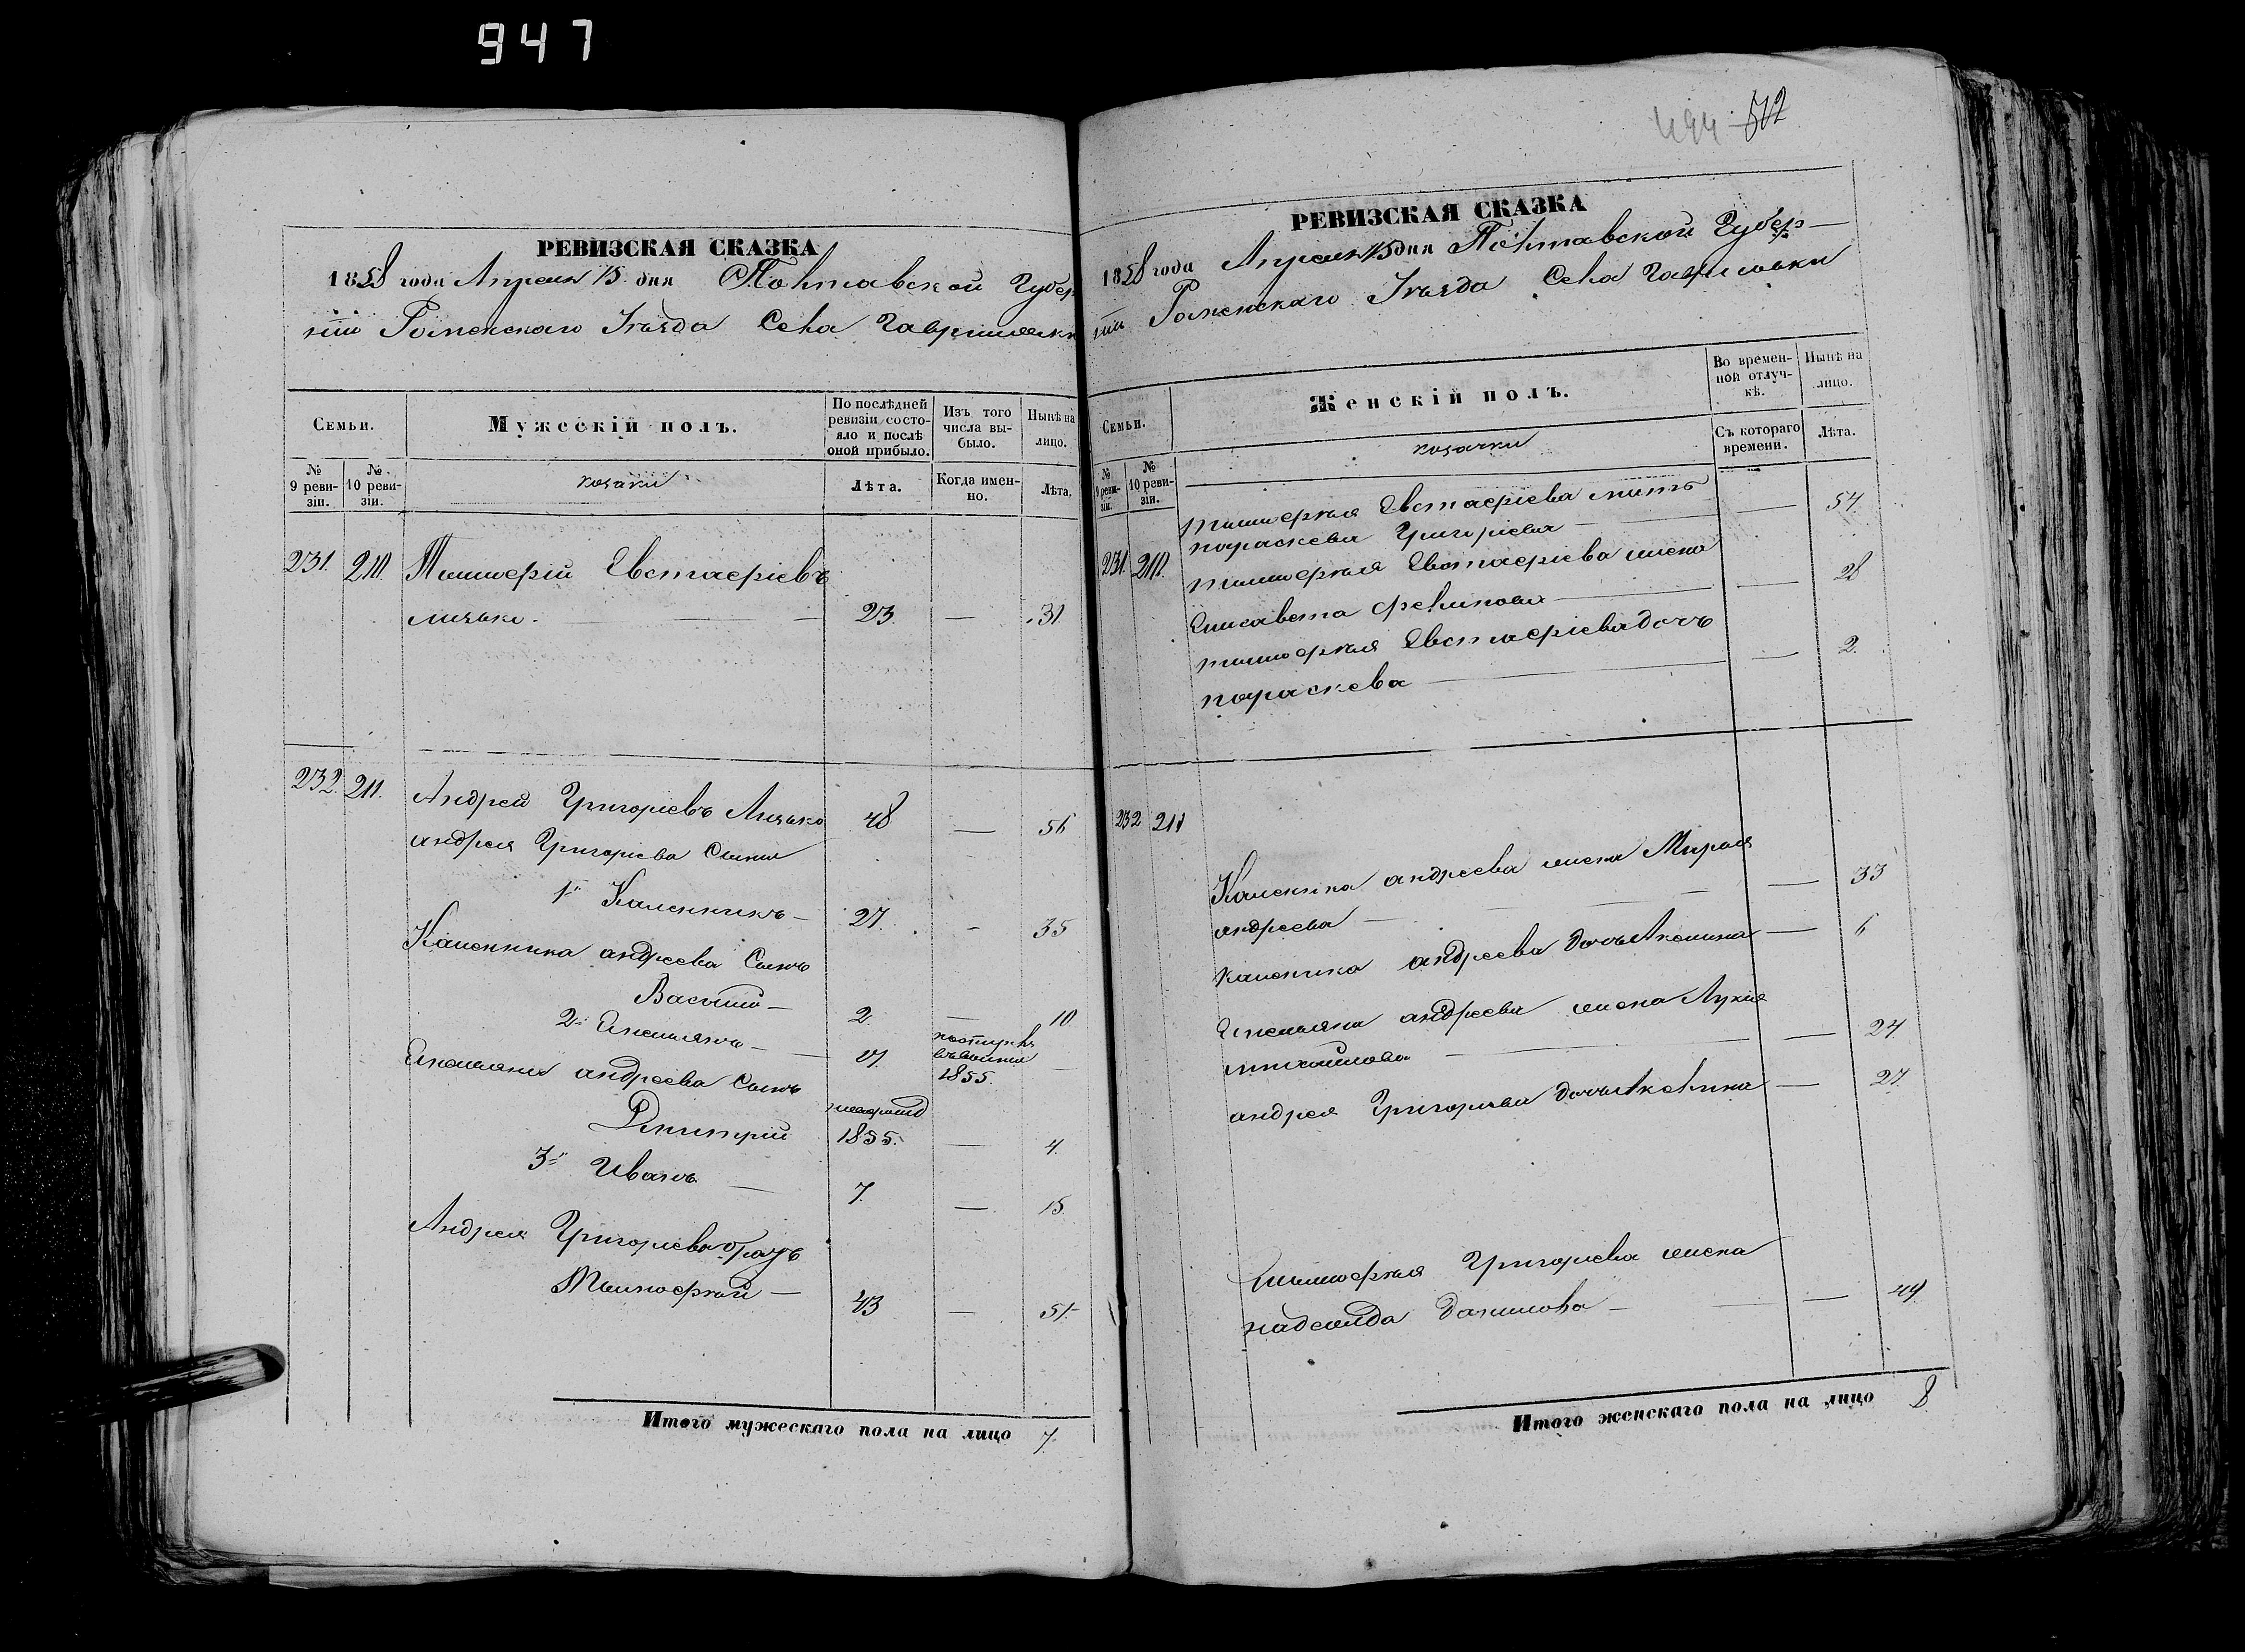 947
РЕВИЗСКАЯ СКАЗКА
1858 года Апреля 15 дня Полтавской Губер
ніи Роменскаго Уѣзда Села Гавриловки
Семьи.
Мужескій полъ.
По послѣдней ревизіи состояло и послѣ оной прибыло.
Изъ того числа выбыло.
Нынѣ на лицо.
№ 9 ревизіи.
№ 10 ревизіи.
козаки
Лѣта.
Когда именно.
Лѣта.
231. 210. Тимофій Евстафіевъ
23 — 31
232. 211. Андрей Григоріевъ 48 — 56
андрея Григоріева Сыны
1й Каленникъ — 27. - 35
Каленника андреева Сынъ
Василій — 2. — 10
2й Емельянъ — 17.
1855.
Емельяна андреева Сынъ
Дмитрій 1855. — 4.
3й Иванъ — 7. — 15
Андрея Григорьева братъ
Тимофей — 43 — 51
Итого мужескаго пола на лицо 7.
494 502
РЕВИЗСКАЯ СКАЗКА
1858 года Апреля 15 дня Полтавской Губер—
ніи Роменскаго Уѣзда Села Гавриловки
Семьи.
Женскій полъ.
Во временной отлучкѣ.
Нынѣ на лицо.
№ 9 ревизіи.
№ 10 ревизіи.
козачки
Съ котораго времени.
Лѣта.
тимофея Евстафіева мать
параскева Григоріева — 54
231. 210. тимофея Евстафіева жена
Елисавета — 28
тимофея Евстафіева дочь
параскева — 2.
232 211
Каленика андреева жена Марія
андреева — 33
каленика андреева дочь Акелина — 6
Емельяна андреева жена Лукія
михайлова — 24
андрея Григорьева дочь Акелина — 27.
тимофея Григорьева жена
надежда Данилова — 49
Итого женскаго пола на лицо 8